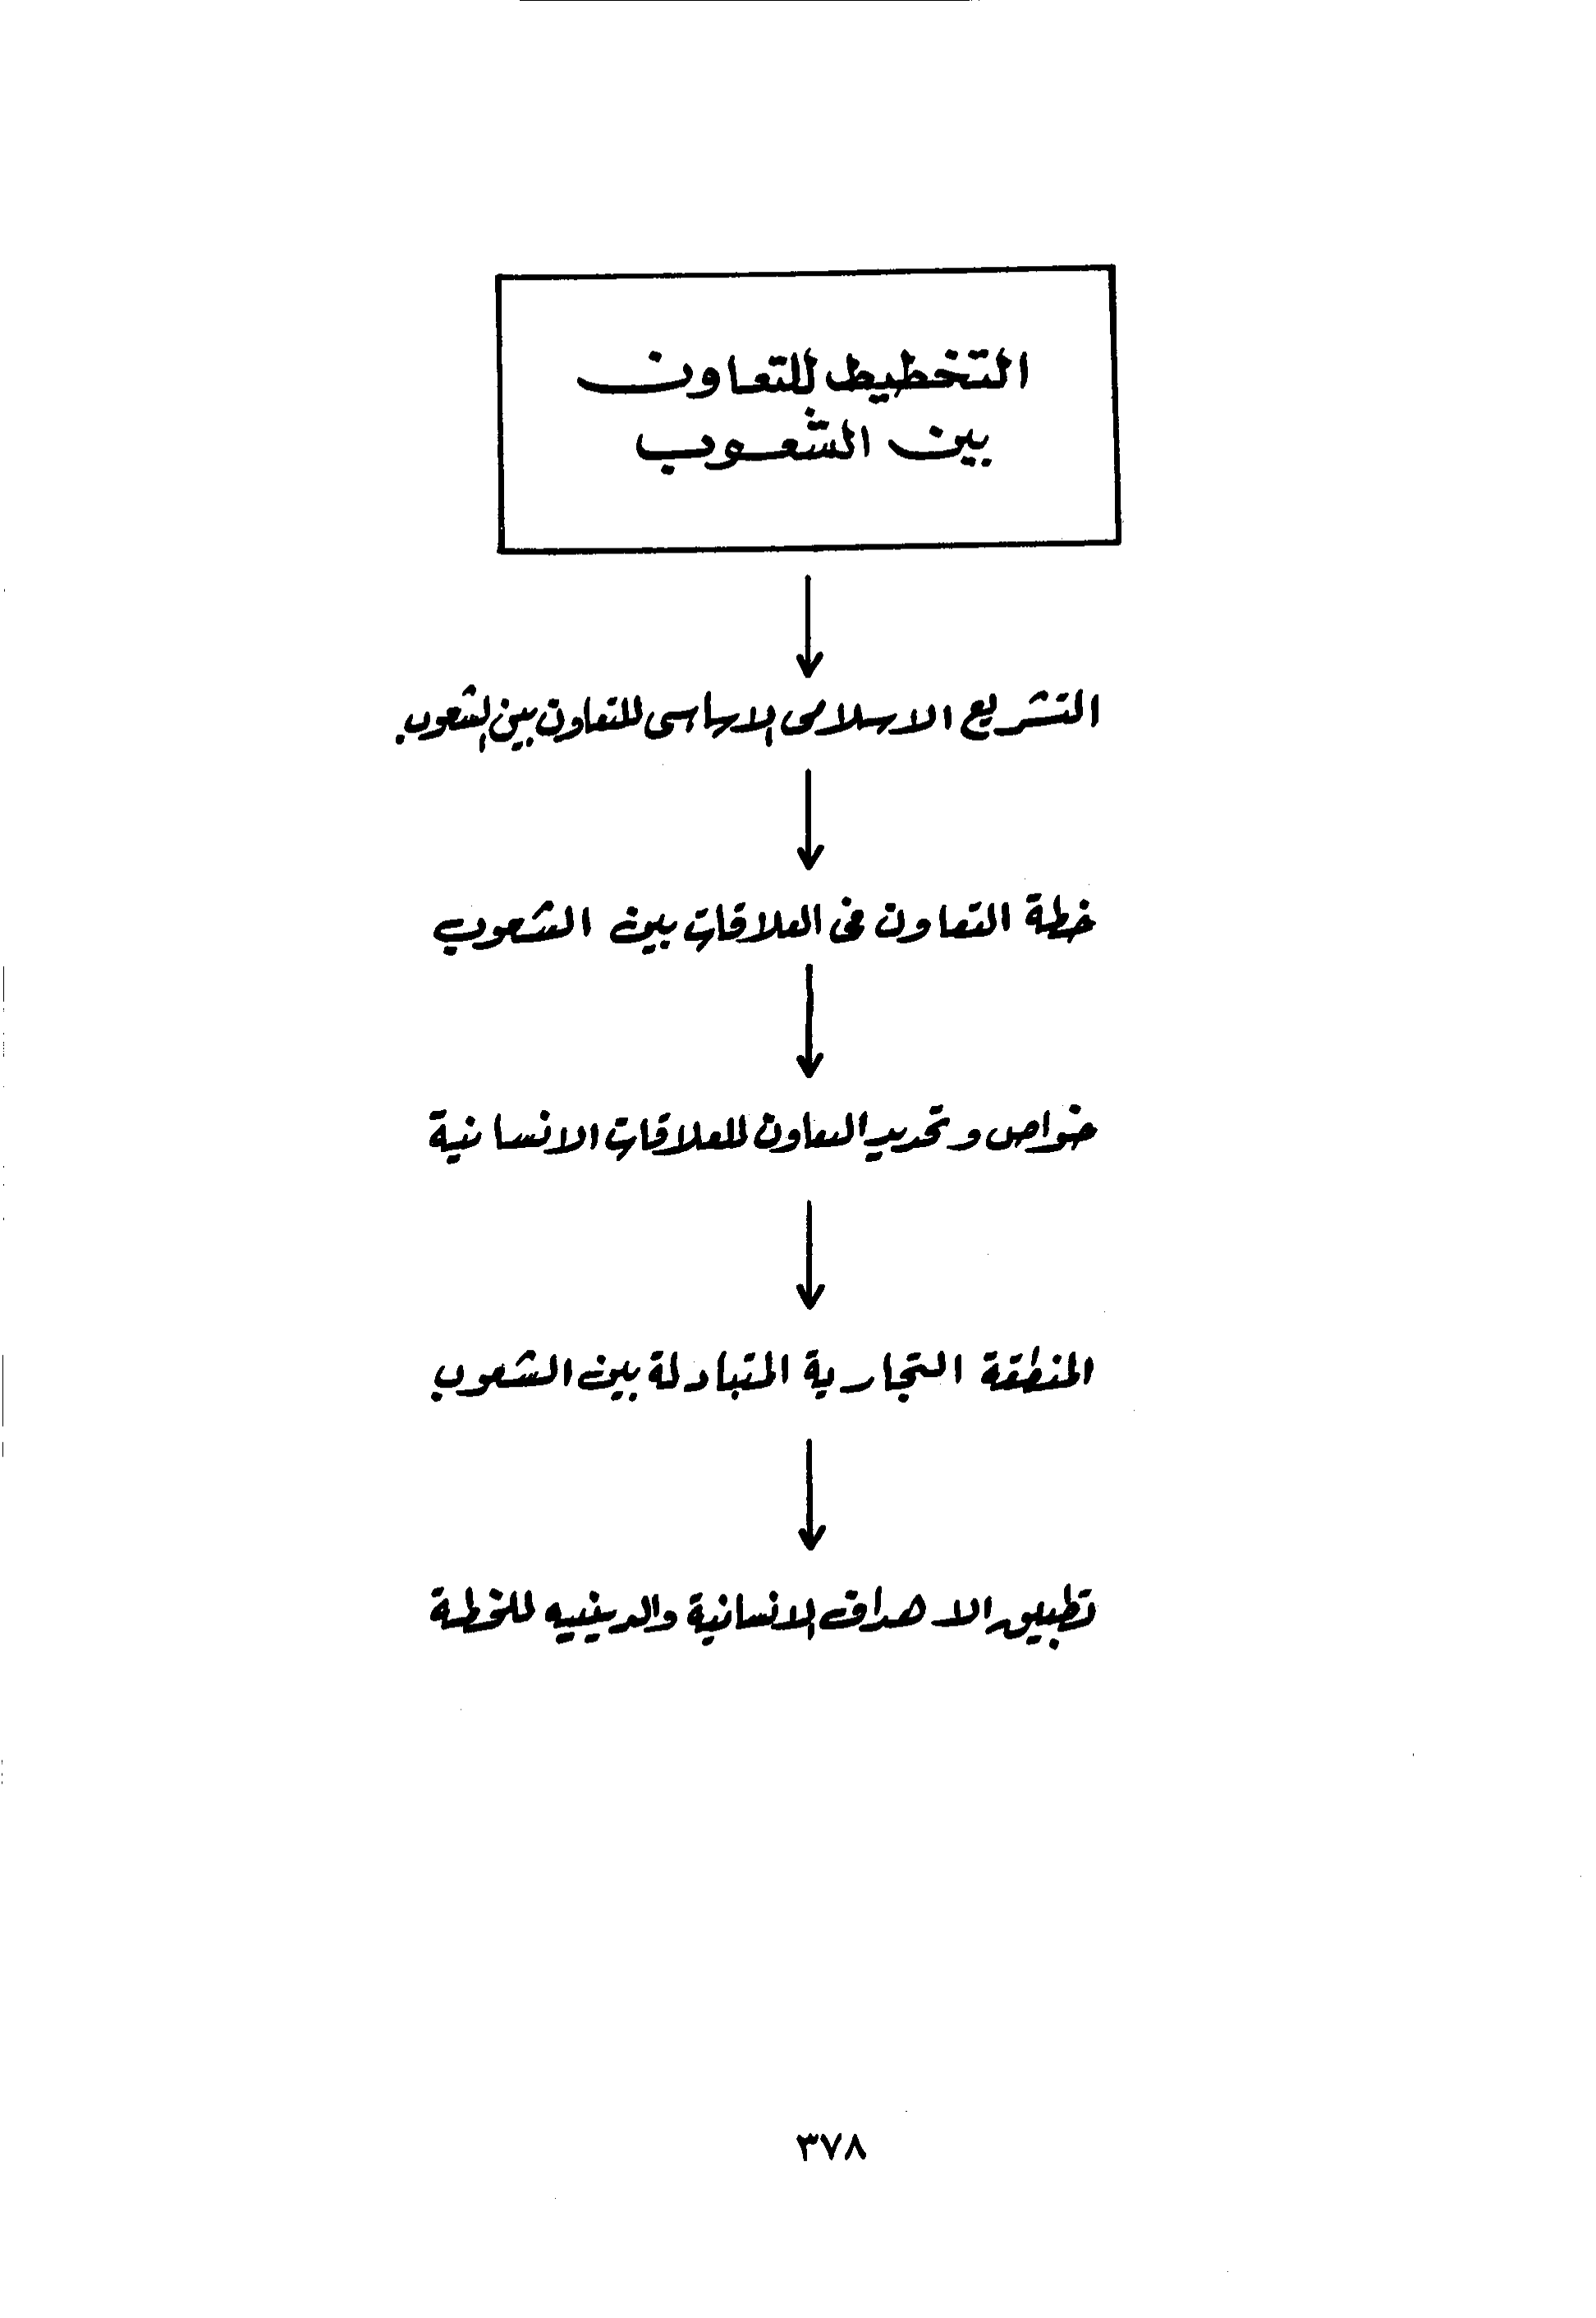 التخطيط للتعاون
بين الشعوب
التشريع الاسلامى الاساسى للتعاون بين الشعوب
خطة التعاون فى العلاقات بين الشعوب
خواص وتحديد التعاون للعلاقات الانسانية
المنطقة التجارية المتبادلة بين الشعوب
تطبيق الاهداف الانسانية والدينيه للخطة
٣٧٨